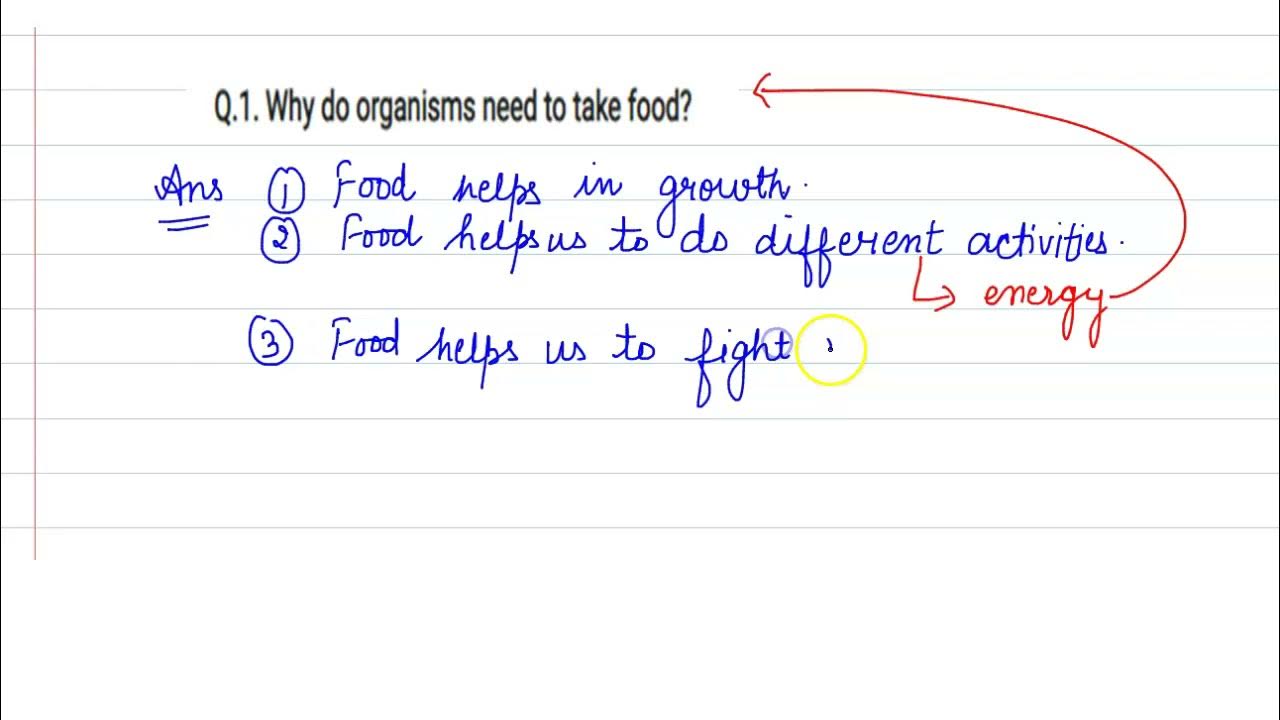 Q.1. Why do organisms need to take food?
Ans ① Food helps in growth.
② Food helps us to do different activities.
↳ energy
③ Food helps us to fight